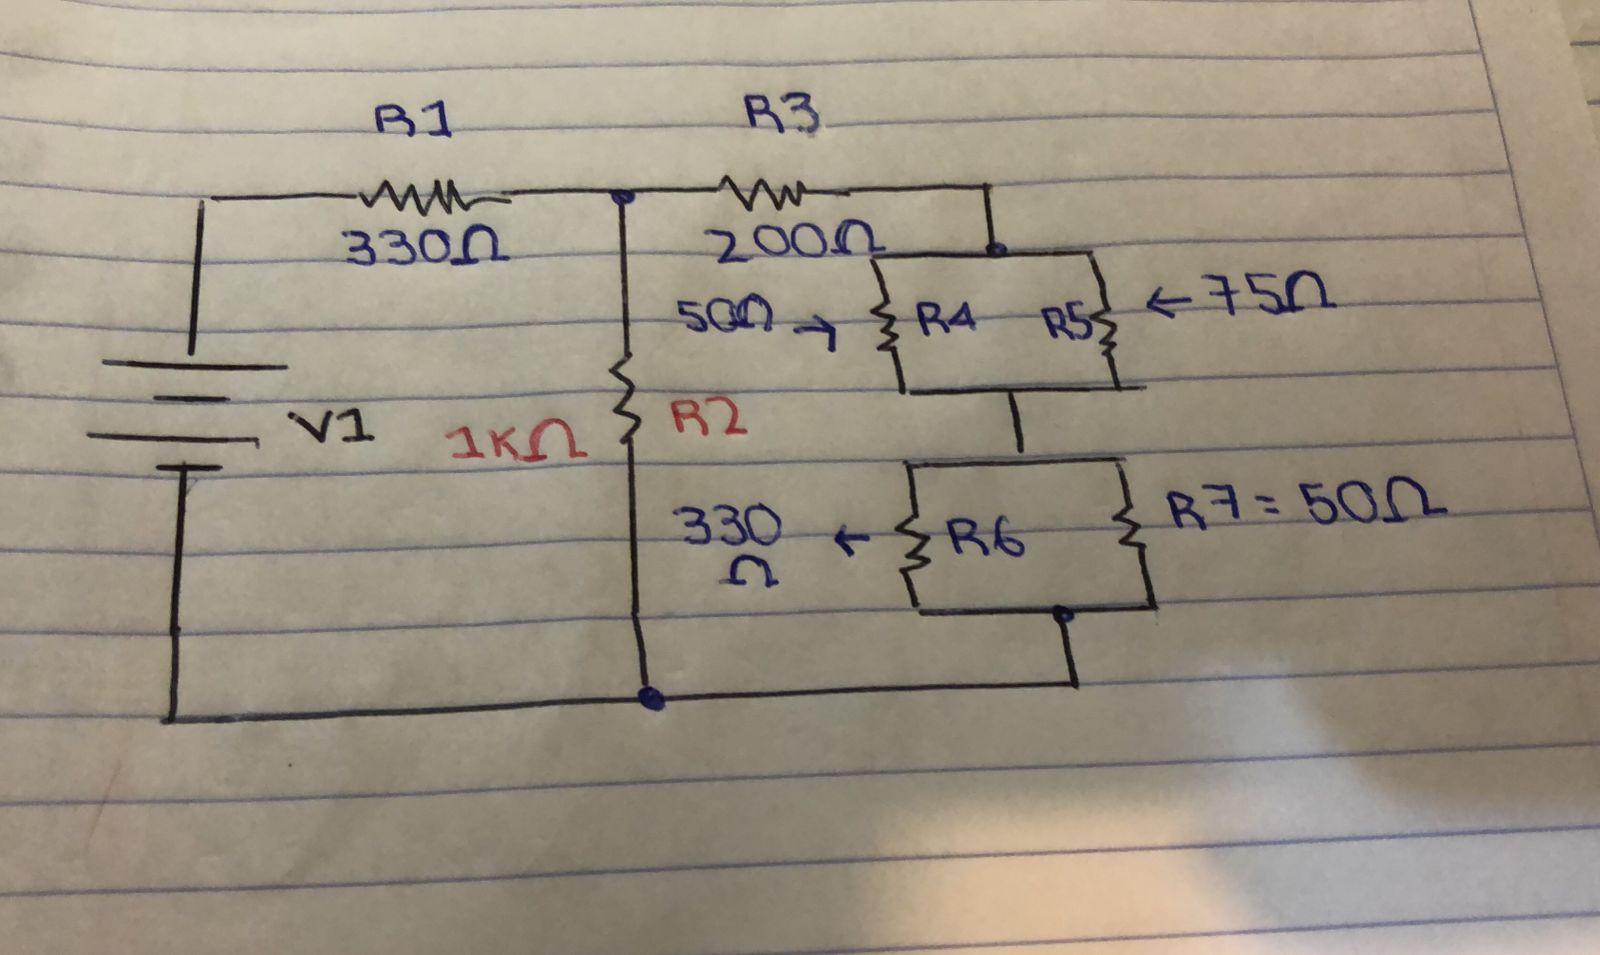 R1 R3
330Ω 200Ω
50Ω → R4 R5 ← 75Ω
V1 1KΩ R2
330 ← R6 R7 = 50Ω
Ω